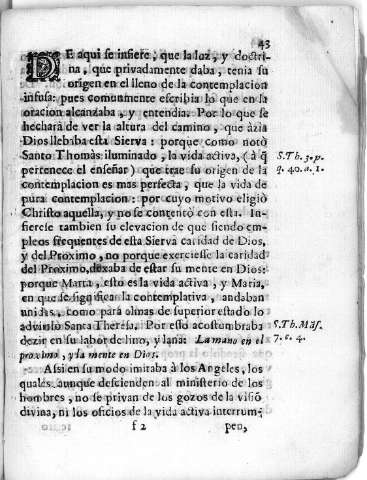 43
DE aqui se infiere, que la luz, y doctri-
na, que privadamente daba, tenia su
origen en el lleno de la contemplacion
infusa: pues comunmente escribia lo que en la
oracion alcanzaba, y entendia. Por lo que se
hechará de ver la altura del camino, que àzia
Dios llebaba esta Sierva: porque como notò
Santo Thomàs iluminado, la vida activa, (à q̃
pertenece el enseñar) que trae su origen de la
contemplacion es mas perfecta, que la vida de
pura contemplacion: por cuyo motivo eligiò
Christo aquella, y no se contentò con esta. In-
fierese tambien su elevacion de que siendo em-
pleos frequentes de esta Sierva caridad de Dios,
y del Proximo, no porque exerciesse la caridad
del Proximo, dexaba de estar su mente en Dios:
porque Marta, esto es la vida activa, y Maria,
en que se significa la contemplativa, andaban
unidas, como para almas de superior estado lo
advirtiò Santa Theresa. Por esto acostumbraba
dezir en su labor de lino, y lana: La mano en el
proximo, y la mente en Dios.
Assi en su modo imitaba à los Angeles, los
quales aunque descienden al ministerio de los
hombres, no se privan de los gozos de la visiõ
divina, ni los oficios de la vida activa interrum-
f 2
pen,
S. Th. 3. p.
q. 40. a. 1.
S. Th. Mās.
7. c. 4.